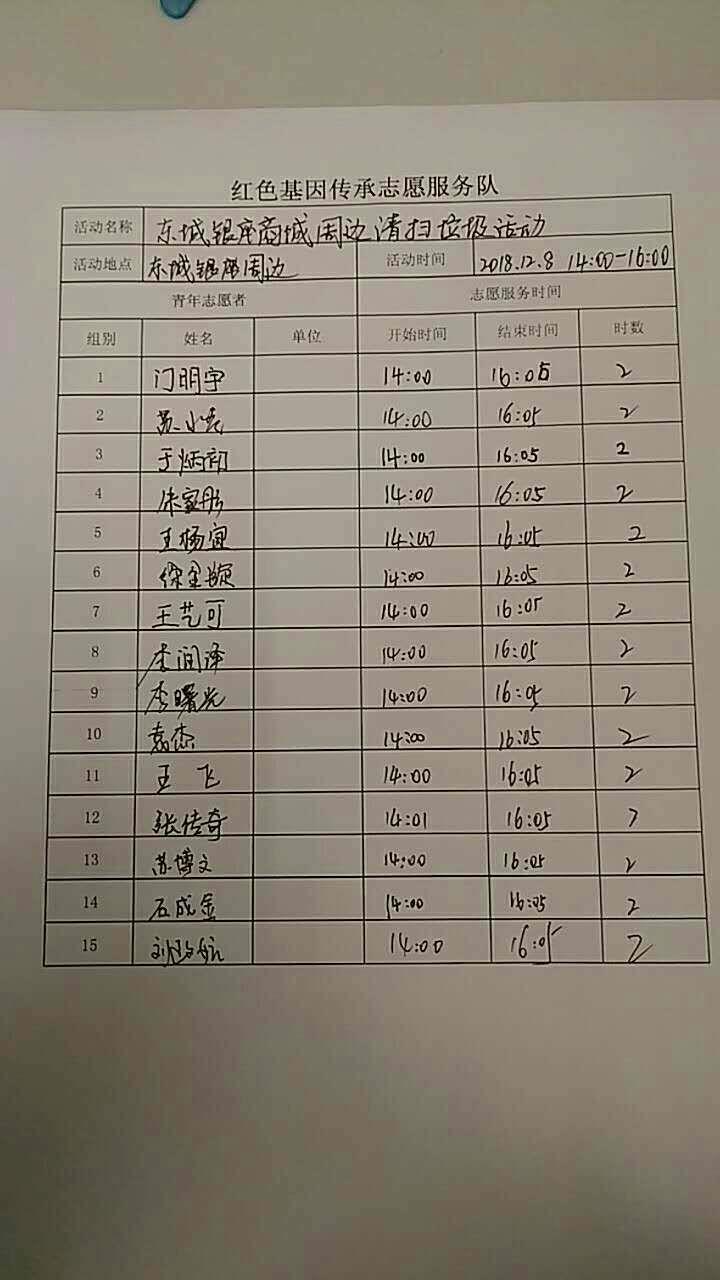 红色基因传承志愿服务队
活动名称 东城银座商城周边清扫垃圾活动
活动地点 东城银座周边 活动时间 2018.12.8 14:00-16:00
青年志愿者 志愿服务时间
组别 姓名 单位 开始时间 结束时间 时数
1 门明宇 14:00 16:05 2
2 苏小 14:00 16:05 2
3 于炳韵 14:00 16:05 2
4 朱家彤 14:00 16:05 2
5 王杨寅 14:00 16:05 2
6 徐金璇 14:00 16:05 2
7 王艺可 14:00 16:05 2
8 李润泽 14:00 16:05 2
9 李曙光 14:00 16:05 2
10 袁杰 14:00 16:05 2
11 王飞 14:00 16:05 2
12 张传奇 14:01 16:05 2
13 苏博文 14:00 16:05 2
14 石成金 14:00 16:05 2
15 刘政航 14:00 16:05 2